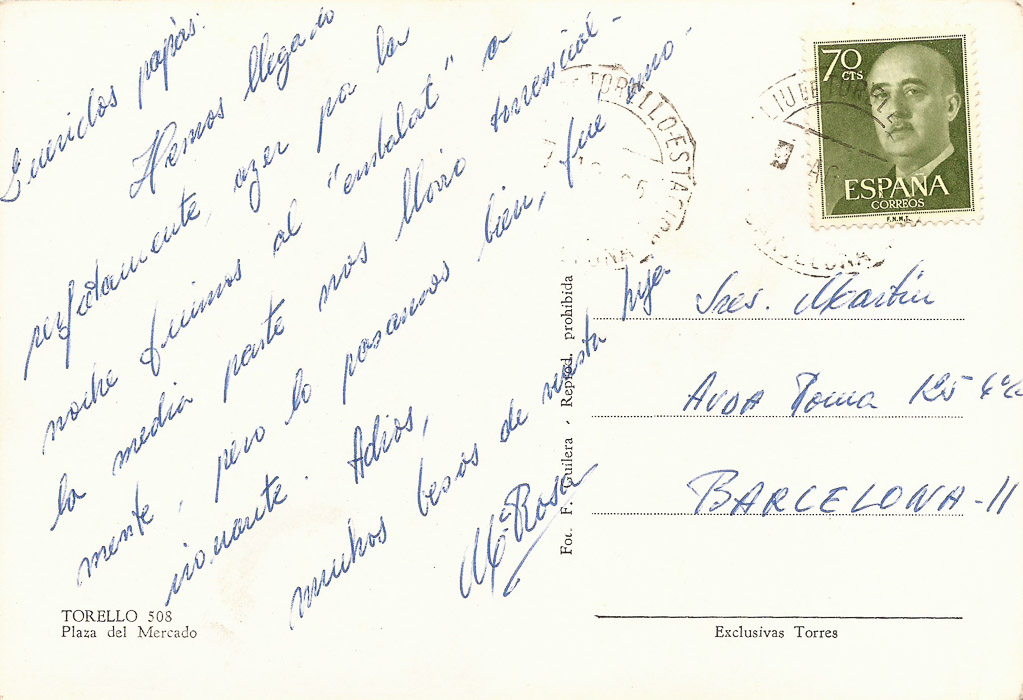 Queridos papás:
Hemos llegado
perfetamente, ayer por la
noche fuimos al "embalat" a
la media parte nos llovio torrencial-
mente, pero lo pasamos bien, fue emo-
cionante. Adios,
muchos besos de vuestra hija
Mª Rosa
TORELLO 508
Plaza del Mercado
Fot. F. Guilera - Reprod. prohibida
TORELLO-ESTACION
70 CTS
ESPAÑA
CORREOS
F.N.M.T.
Sres. Martin
AVDA Roma 125 4º
BARCELONA-11
Exclusivas Torres